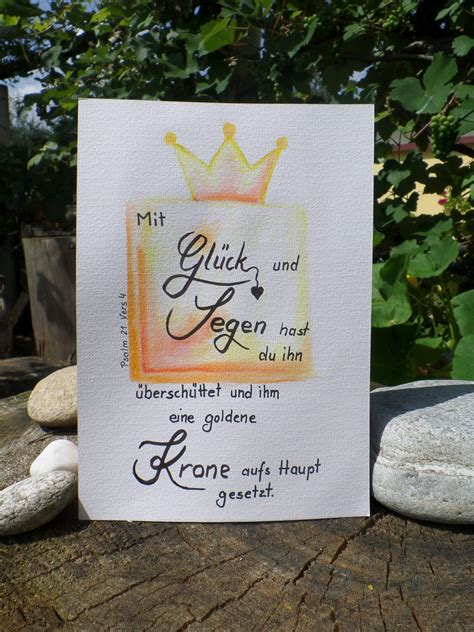 Mit
Glück und
Segen hast
du ihn
überschüttet und ihm
eine goldene
Krone aufs Haupt
gesetzt.
Psalm 21 Vers 4